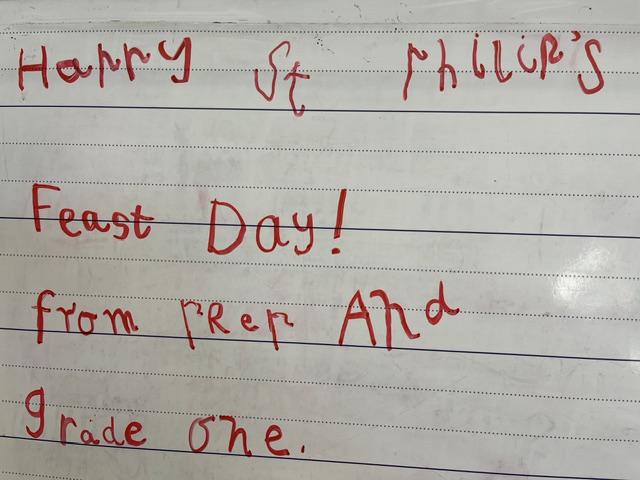 Happy St Philip's
Feast Day!
from pRep And
grade one.